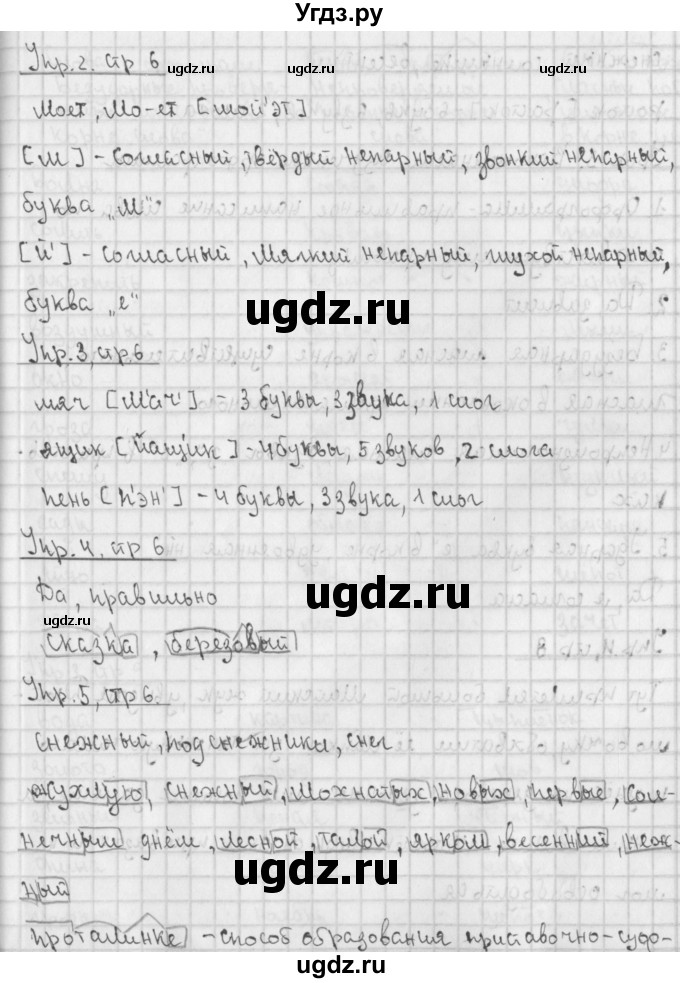 Угдз.ру
Упр. 2. стр 6
ugdz.ru ugdz.ru ugdz.ru
Моет, Мо-ет [мой'эт]
[М] - Согласный, твёрдый непарный, звонкий непарный,
буква „М“
[й'] - согласный, Мягкий непарный, глухой непарный,
буква „е“
ugdz.ru
Упр. 3, стр. 6
мяч [М'ач'] - 3 буквы, 3 звука, 1 слог
ящик [йащ'ик] - 4 буквы, 5 звуков, 2 слога
пень [п'эн'] - 4 буквы, 3 звука, 1 слог
Упр. 4. стр 6
ugdz.ru
Да, правильно
Сказка, березовый
ugdz.ru ugdz.ru ugdz.ru
Упр. 5, стр 6.
снежный, подснежники, снег
жухлую, снежный, мохнатых, новых, первые, сол-
нечным днём, лесной, талой, ярком, весенний, неж-
ный
ugdz.ru
проталинке - способ образования приставочно-суфо-
ugdz.ru